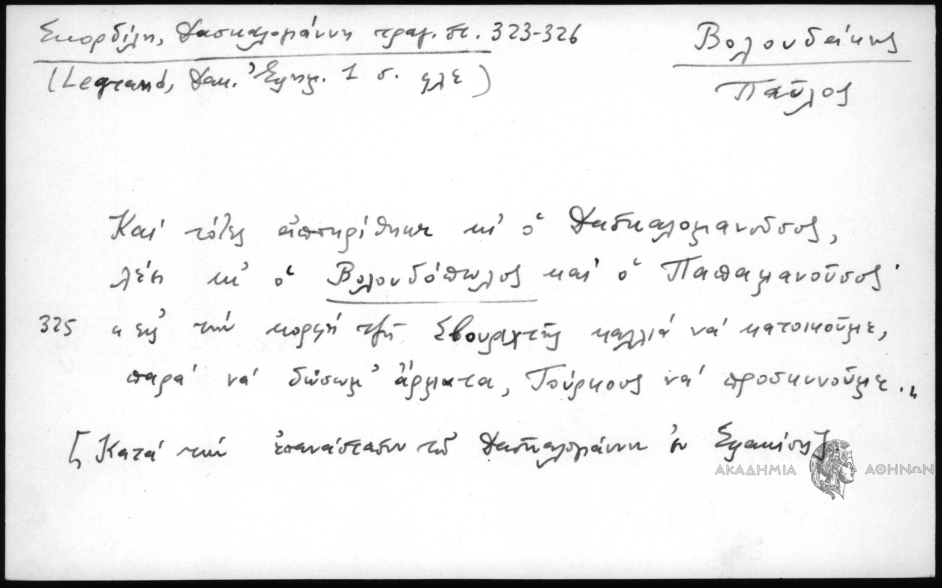 Σκορδίλη, Δασκαλογιάννη τραγ. στ. 323-326
(Legrand, Δημ. σ. ρλε)
Βολουδάκης
Παῦλος
Καὶ τότες ἀπηρίθηκε κι ὁ Δασκαλογιανοῦσος,
λέει κι ὁ Βολουδόπουλος καὶ ὁ Παπαμανοῦσος·
325 "εἰς τὴν κορφὴ τζῆ Σβουριχτῆς καλλιὰ νὰ κατοικοῦμε,
παρὰ νὰ δώσωμ' ἄρματα, Τούρκους νὰ προσκυνοῦμε."
[Κατὰ τὴν ἐπανάστασιν τοῦ Δασκαλογιάννη ἐν Σφακίοις]
ΑΚΑΔΗΜΙΑ ΑΘΗΝΩΝ